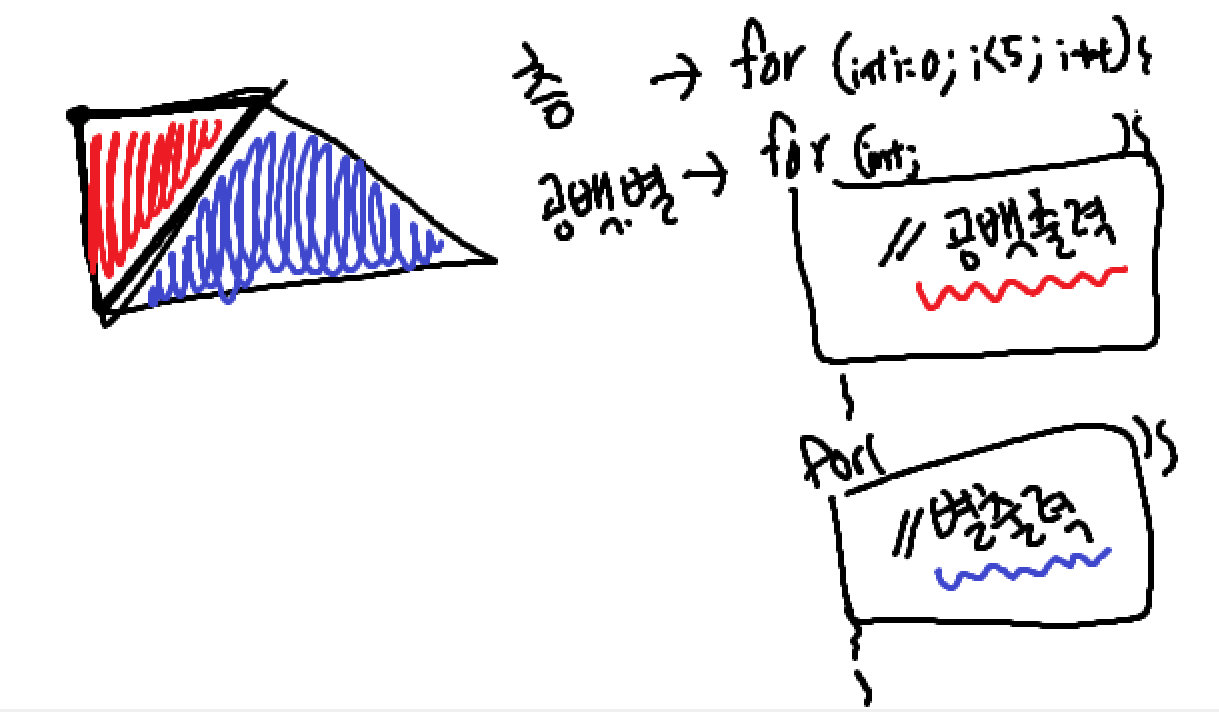 층 → for (int i=0; i<5; i++){
공백.별 → for (int; ){
// 공백출력
}
for( ){
// 별출력
}
}